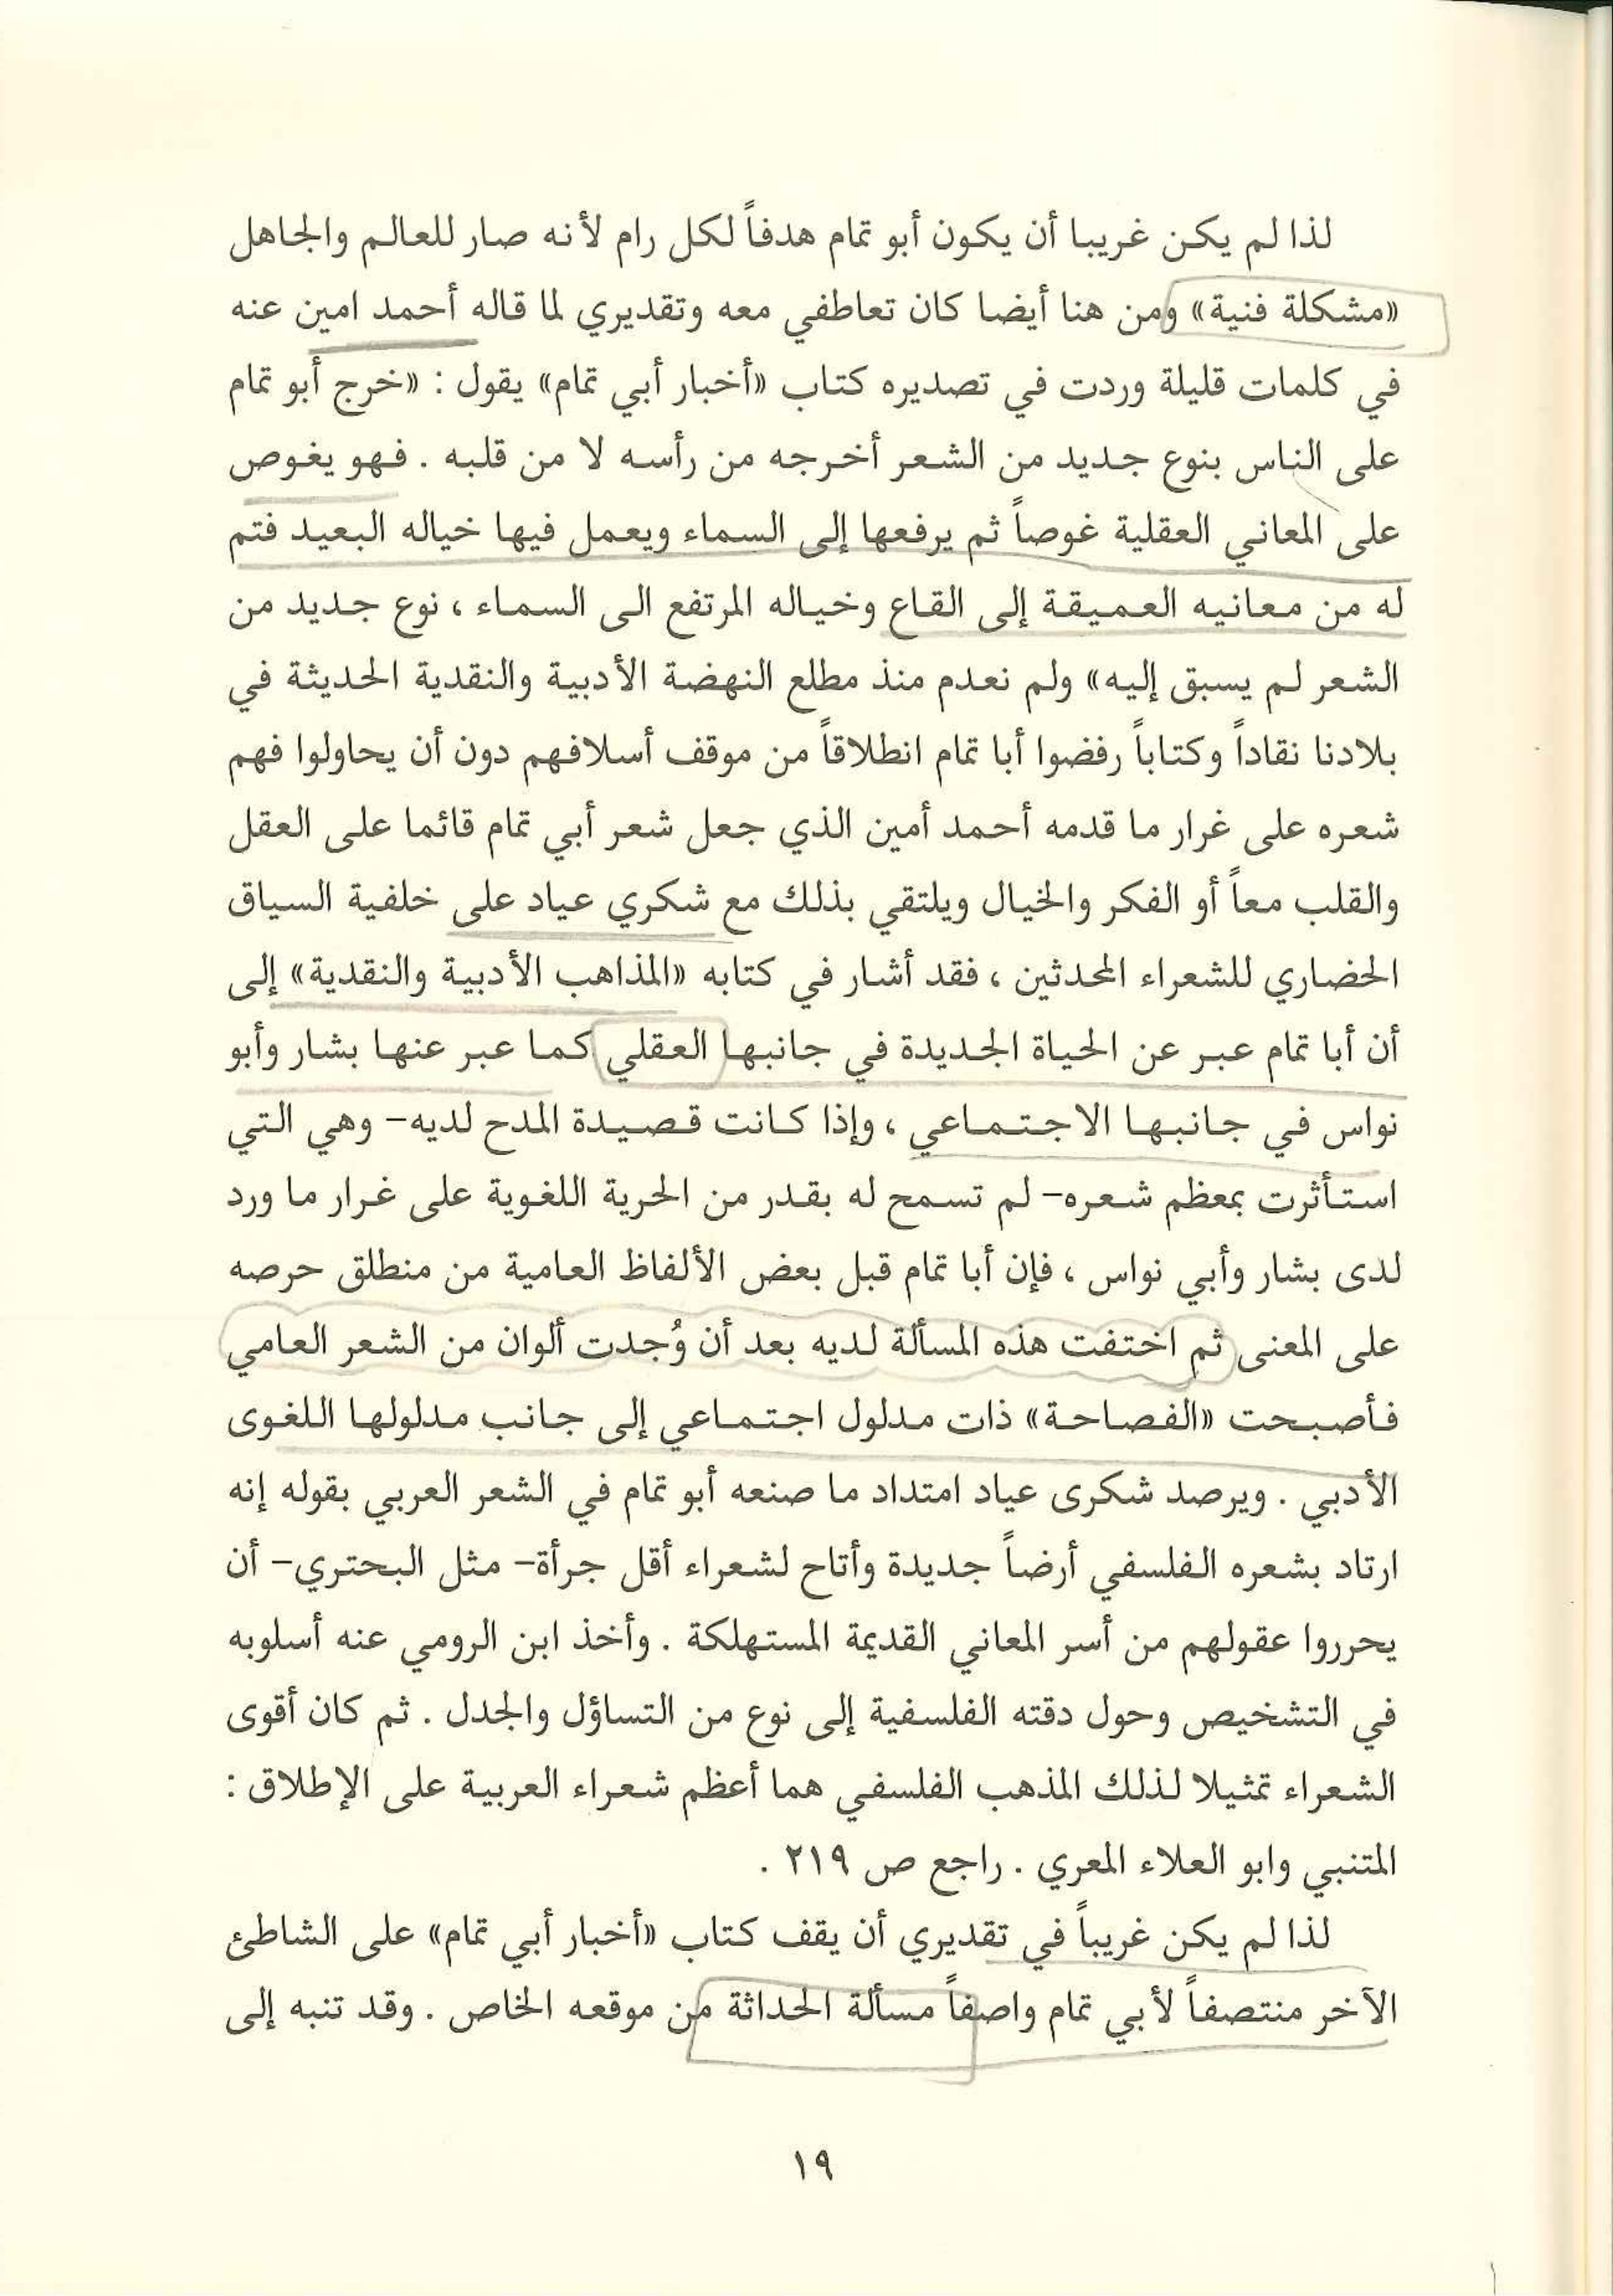 لذا لم يكن غريبا أن يكون أبو تمام هدفاً لكل رام لأنه صار للعالم والجاهل
«مشكلة فنية» ومن هنا أيضا كان تعاطفي معه وتقديري لما قاله أحمد امين عنه
في كلمات قليلة وردت في تصديره كتاب «أخبار أبي تمام» يقول : «خرج أبو تمام
على الناس بنوع جديد من الشعر أخرجه من رأسه لا من قلبه . فهو يغوص
على المعاني العقلية غوصاً ثم يرفعها إلى السماء ويعمل فيها خياله البعيد فتم
له من معانيه العميقة إلى القاع وخياله المرتفع الى السماء ، نوع جديد من
الشعر لم يسبق إليه» ولم نعدم منذ مطلع النهضة الأدبية والنقدية الحديثة في
بلادنا نقاداً وكتاباً رفضوا أبا تمام انطلاقاً من موقف أسلافهم دون أن يحاولوا فهم
شعره على غرار ما قدمه أحمد أمين الذي جعل شعر أبي تمام قائما على العقل
والقلب معاً أو الفكر والخيال ويلتقي بذلك مع شكري عياد على خلفية السياق
الحضاري للشعراء المحدثين ، فقد أشار في كتابه «المذاهب الأدبية والنقدية» إلى
أن أبا تمام عبر عن الحياة الجديدة في جانبها العقلي كما عبر عنها بشار وأبو
نواس في جانبها الاجتماعي ، وإذا كانت قصيدة المدح لديه- وهي التي
استأثرت بمعظم شعره- لم تسمح له بقدر من الحرية اللغوية على غرار ما ورد
لدى بشار وأبي نواس ، فإن أبا تمام قبل بعض الألفاظ العامية من منطلق حرصه
على المعنى ثم اختفت هذه المسألة لديه بعد أن وُجدت ألوان من الشعر العامي
فأصبحت «الفصاحة» ذات مدلول اجتماعي إلى جانب مدلولها اللغوى
الأدبي . ويرصد شكرى عياد امتداد ما صنعه أبو تمام في الشعر العربي بقوله إنه
ارتاد بشعره الفلسفي أرضاً جديدة وأتاح لشعراء أقل جرأة- مثل البحتري- أن
يحرروا عقولهم من أسر المعاني القديمة المستهلكة . وأخذ ابن الرومي عنه أسلوبه
في التشخيص وحول دقته الفلسفية إلى نوع من التساؤل والجدل . ثم كان أقوى
الشعراء تمثيلا لذلك المذهب الفلسفي هما أعظم شعراء العربية على الإطلاق :
المتنبي وابو العلاء المعري . راجع ص ٢١٩ .
لذا لم يكن غريباً في تقديري أن يقف كتاب «أخبار أبي تمام» على الشاطئ
الآخر منتصفاً لأبي تمام واصفاً مسألة الحداثة من موقعه الخاص . وقد تنبه إلى
١٩